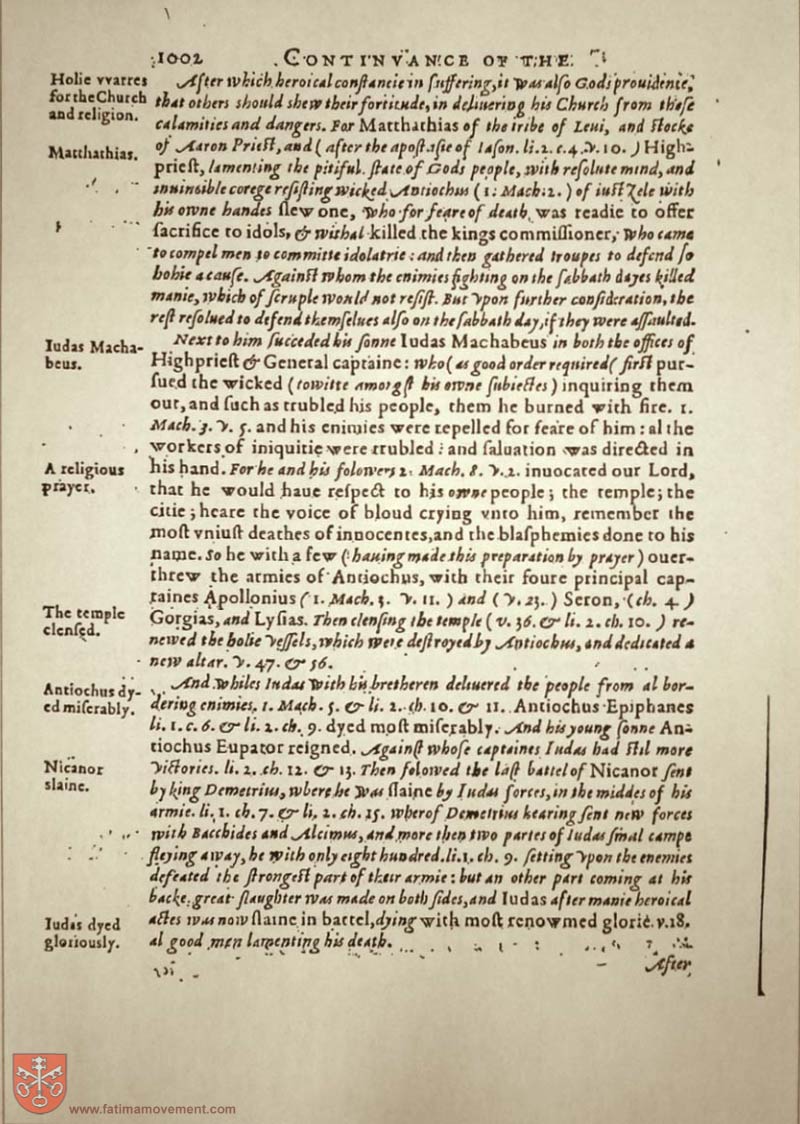 1002 CONTINVANCE OF THE
Holie vvarres
for the Church
and religion.
After which heroical constancie in suffering, it was also Gods prouidence,
that others should shew their fortitude, in deliuering his Church from these
calamities and dangers. For Matthathias of the tribe of Leui, and stocke
Matthathias.
of Aaron Priest, and (after the apostasie of Iason. li. 2. c. 4. v. 10.) High-
priest, lamenting the pitiful state of Gods people, with resolute mind, and
inuinsible corege resisting wicked Antiochus (1. Mach. 2.) of iust zele with
his owne handes slew one, who for feare of death was readie to offer
sacrifice to idols, & withal killed the kings commissioner, who came
to compel men to committe idolatrie: and then gathered troupes to defend so
holie a cause. Against whom the enimies fighting on the sabbath dayes killed
manie, which of scruple would not resist. But vpon further consideration, the
rest resolued to defend themselues also on the sabbath day, if they were assaulted.
Iudas Macha-
beus.
Next to him succeded his sonne Iudas Machabeus in both the offices of
Highpriest & General captaine: who (as good order required( first pur-
sued the wicked (towitte amongst his owne subiectes) inquiring them
out, and such as trubled his people, them he burned with fire. 1.
Mach. 3. v. 5. and his enimies were repelled for feare of him: al the
workers of iniquitie were trubled: and saluation was directed in
A religious
prayer.
his hand. For he and his folowers 2. Mach. 8. v. 2. inuocated our Lord,
that he would haue respect to his owne people; the temple; the
citie; heare the voice of bloud crying vnto him, remember the
most vniust deathes of innocentes, and the blasphemies done to his
name. So he with a few (hauing made this preparation by prayer) ouer-
threw the armies of Antiochus, with their foure principal cap-
taines Apollonius (1. Mach. 3. v. 11.) and (v. 23.) Seron, (ch. 4)
The temple
clensed.
Gorgias, and Lysias. Then clensing the temple (v. 36. & li. 2. ch. 10.) re-
newed the holie vessels, which were destroyed by Antiochus, and dedicated a
new altar. v. 47. & 56.
Antiochus dy-
ed miserably.
And whiles Iudas with his bretheren deliuered the people from al bor-
dering enimies. 1. Mach. 5. & li. 2. ch. 10. & 11. Antiochus Epiphanes
li. 1. c. 6. & li. 2. ch. 9. dyed most miserably. And his young sonne An-
tiochus Eupator reigned. Against whose captaines Iudas had stil more
Nicanor
slaine.
victories. li. 2. ch. 12. & 13. Then folowed the last battel of Nicanor sent
by king Demetrius, where he was slaine by Iudas forces, in the middes of his
armie. li. 1. ch. 7. & li. 2. ch. 15. wherof Demetrius hearing sent new forces
with Bacchides and Alcimus, and more then two partes of Iudas smal campe
fleying away, he with only eight hundred. li. 1. ch. 9. setting vpon the enemies
defeated the strongest part of their armie: but an other part coming at his
backe, great slaughter was made on both sides, and Iudas after manie heroical
Iudas dyed
gloriously.
actes was now slaine in battel, dying with most renowmed glorie. v. 18.
al good men lamenting his death.
After
www.fatimamovement.com